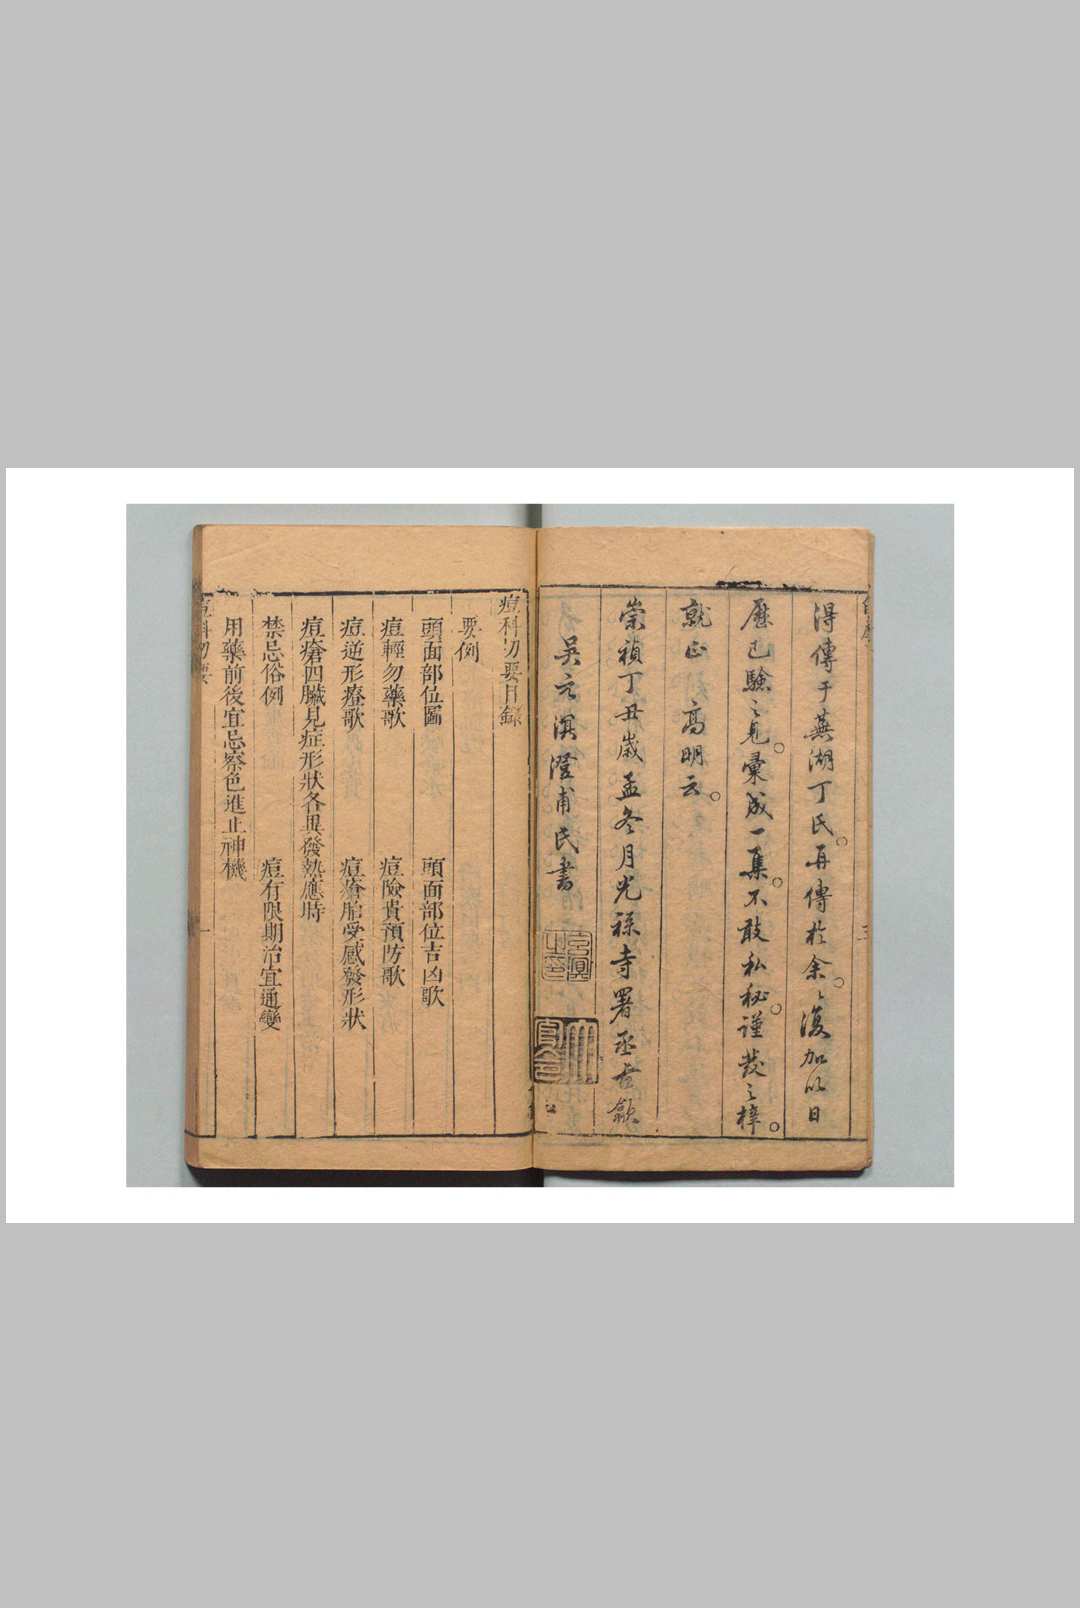 得傳于蕪湖丁氏。再傳於余。余復加以日
歷已驗之見。彙成一集。不敢私秘。謹發之梓。
就正 高明云。
崇禎丁丑歲孟冬月光祿寺署丞古歙
吳元溟澄甫氏書
痘科切要目錄
要例
頭面部位圖 頭面部位吉凶歌
痘輕勿藥歌 痘險貴預防歌
痘逆形療歌 痘瘡胎受感發形狀
痘瘡四臟見症形狀各異發熱應時
禁忌俗例 痘有限期治宜通變
用藥前後宜忌察色進止神機
痘科切要 一